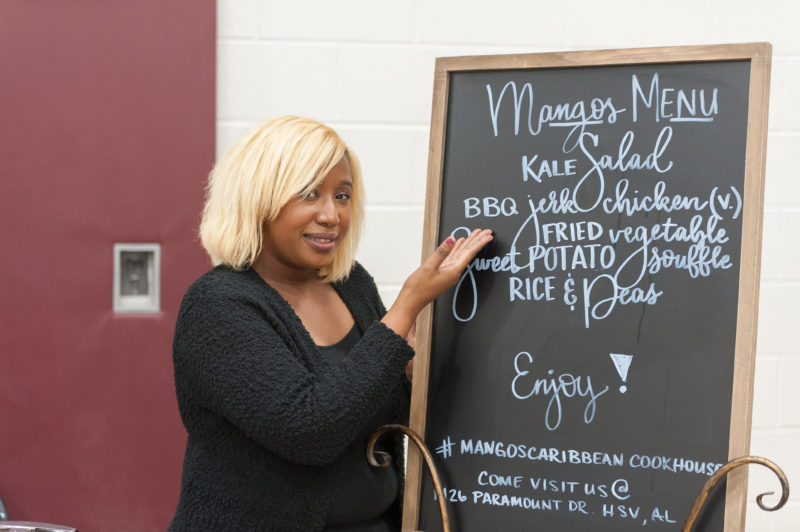 Mangos MENU
KALE Salad
BBQ jerk chicken (v.)
FRIED vegetable
Sweet POTATO Souffle
RICE & Peas
Enjoy!
# MANGOSCARIBBEAN COOKHOUSE
COME VISIT US @
1126 PARAMOUNT DR. HSV, AL